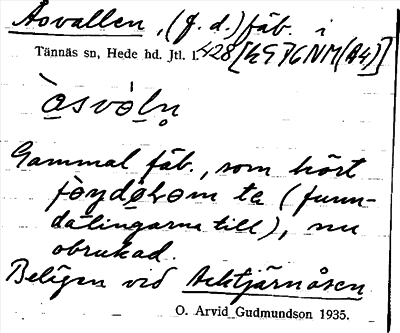 Åsvallen, (f. d.) fäb. i
Tännäs sn, Hede hd. Jtl. l. 428
àsvàln
Gammal fäb., som hört
ta (funn-
dalingarna till), nu
obrukad.
Belägen vid Acktjärnåsen
O. Arvid Gudmundson 1935.